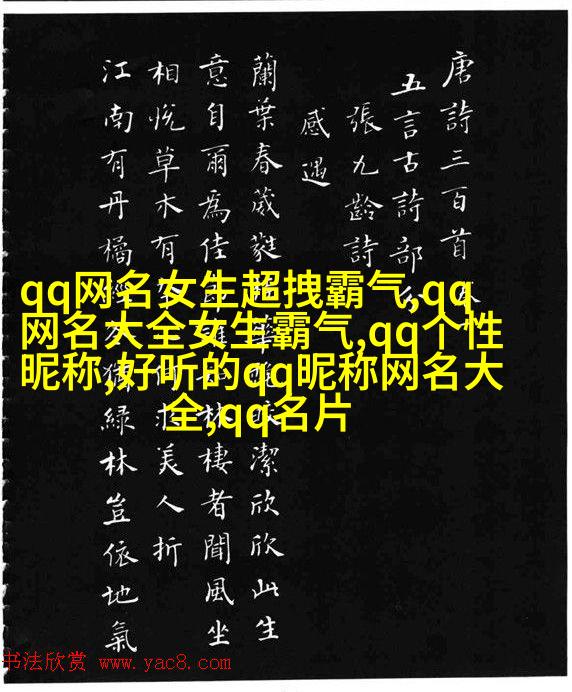 唐詩三百首
五言古詩部
張九齡詩
感遇
蘭葉春葳蕤華潔欣欣此生
意自爾為佳誰林棲者聞風坐
相悅草木有何美人折
江南有丹橘經猶綠林豈依地氣
qq网名女生超拽霸气,qq
网名大全女生霸气,qq个性
昵称,好听的qq昵称网名大
全,qq名片
书法欣赏 www.yac8.com